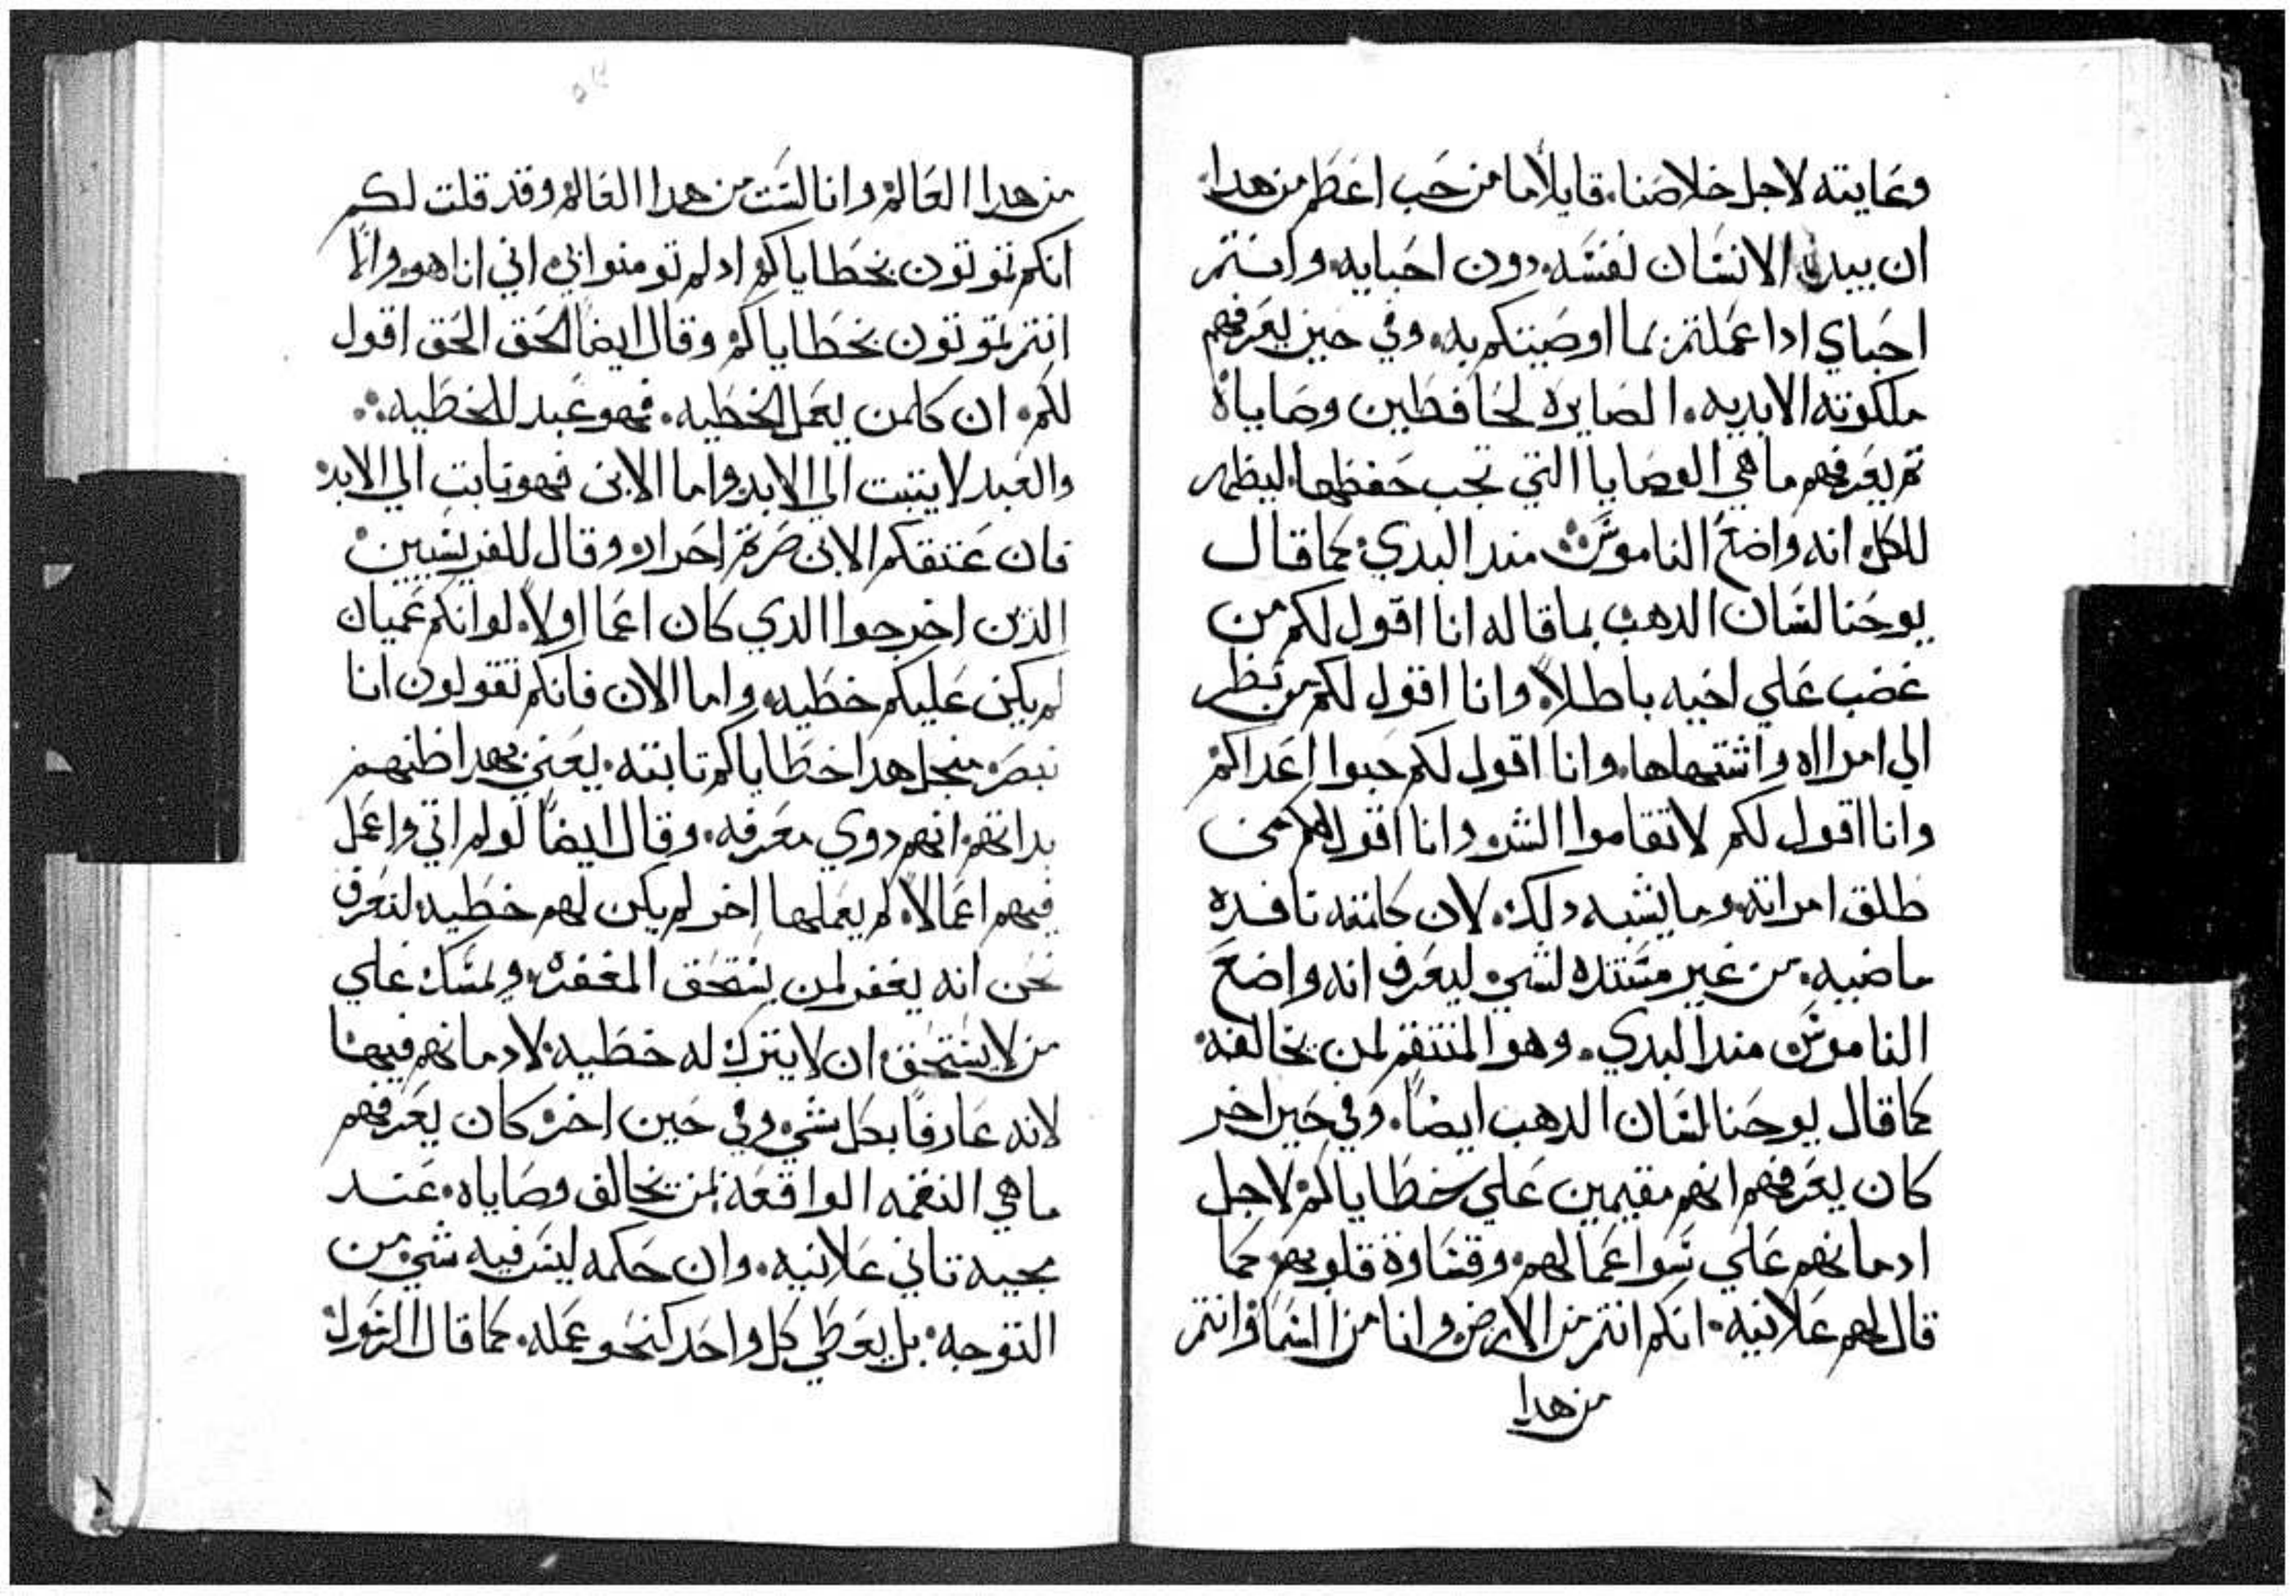 وعنايته لاجل خلاصنا. قايلاً ما من حب اعظم من هدا.
ان يبدل الانسان نفسه. دون احبايه. وانتم
احباي ادا عملتم بما اوصيتكم به. وفي حين يعرفهم
ملكوته الابديه. الصايره لحافظين وصاياه
تم يعرفهم ما هي الوصايا التي تجب حفظها. ليظهر
للكل انه واضع الناموس مند البدي. كما قال
يوحنا لسان الدهب بما قاله انا اقول لكم من
غضب علي اخيه باطلاً. وانا اقول لكم من نظر
الي امراه واشتهاها. وانا اقول لكم حبوا اعداكم
وانا اقول لكم لا تقاموا الشر. وانا اقول لكم من
طلق امراته. وما يشبه دلك. لان كلمته نافده
ماضيه. من غير مستنده لشي. ليعرف انه واضع
الناموس مند البدي. وهو المنتقم لمن يخالفه.
كما قال يوحنا لسان الدهب ايضاً. وفي حين اخر
كان يعرفهم انهم مقيمين علي خطاياكم لاجل
ادمانهم علي سوا عمالهم. وقساوة قلوبهم كما
قال لهم علانيه. انكم انتم من الارض وانا من السما وانتم
من هدا
من هدا العالم وانا لست من هدا العالم وقد قلت لكم
انكم تموتون بخطاياكم اد لم تومنوا بي. اني انا هو. والا
انتم تموتون بخطاياكم. وقال ايضاً الحق الحق اقول
لكم. ان كلمن يعمل الخطيه. فهو عبد للخطيه.
والعبد لا يتبت الي الابد. واما الابن فهو تابت الي الابد
فان عتقكم الابن صرتم احرار. وقال للفريسيين
الذين اخرجوا الدي كان اعما اولاً. لو انكم عميان
لم يكن عليكم خطيه. واما الان فانكم تقولون انا
نبصر. منجل هدا خطاياكم تابته. يعني بهدا ظنهم
بداتهم. انهم دوي معرفه. وقال ايضاً لو لم اتي واعمل
فيهم اعمالاً. لم يعملها اخر لم يكن لهم خطيه. لنعرف
نحن انه يغفر لمن يستحق المغفره. ويمسك علي
من لا يستحق. ان لا يترك له خطيه. لادمانهم فيها
لانه عارفاً بكل شي. وفي حين اخر كان يعرفهم
ما هي النقمه الواقعه لمن يخالف وصاياه. عند
مجيه تاني علانيه. وان حكمه ليس فيه شي من
التوجه. بل يعطي كل واحد كنحو عمله. كما قال الرسول